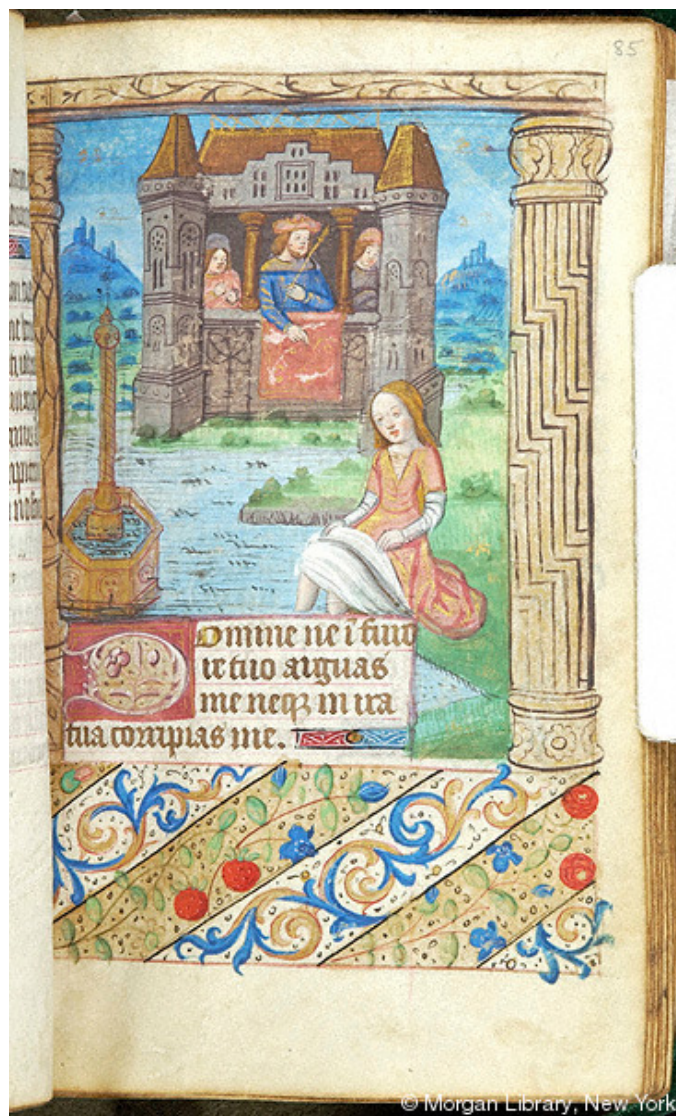 85
Domine ne ī furo
re tuo arguas
me neqz in ira
tua corripias me.
© Morgan Library, New York